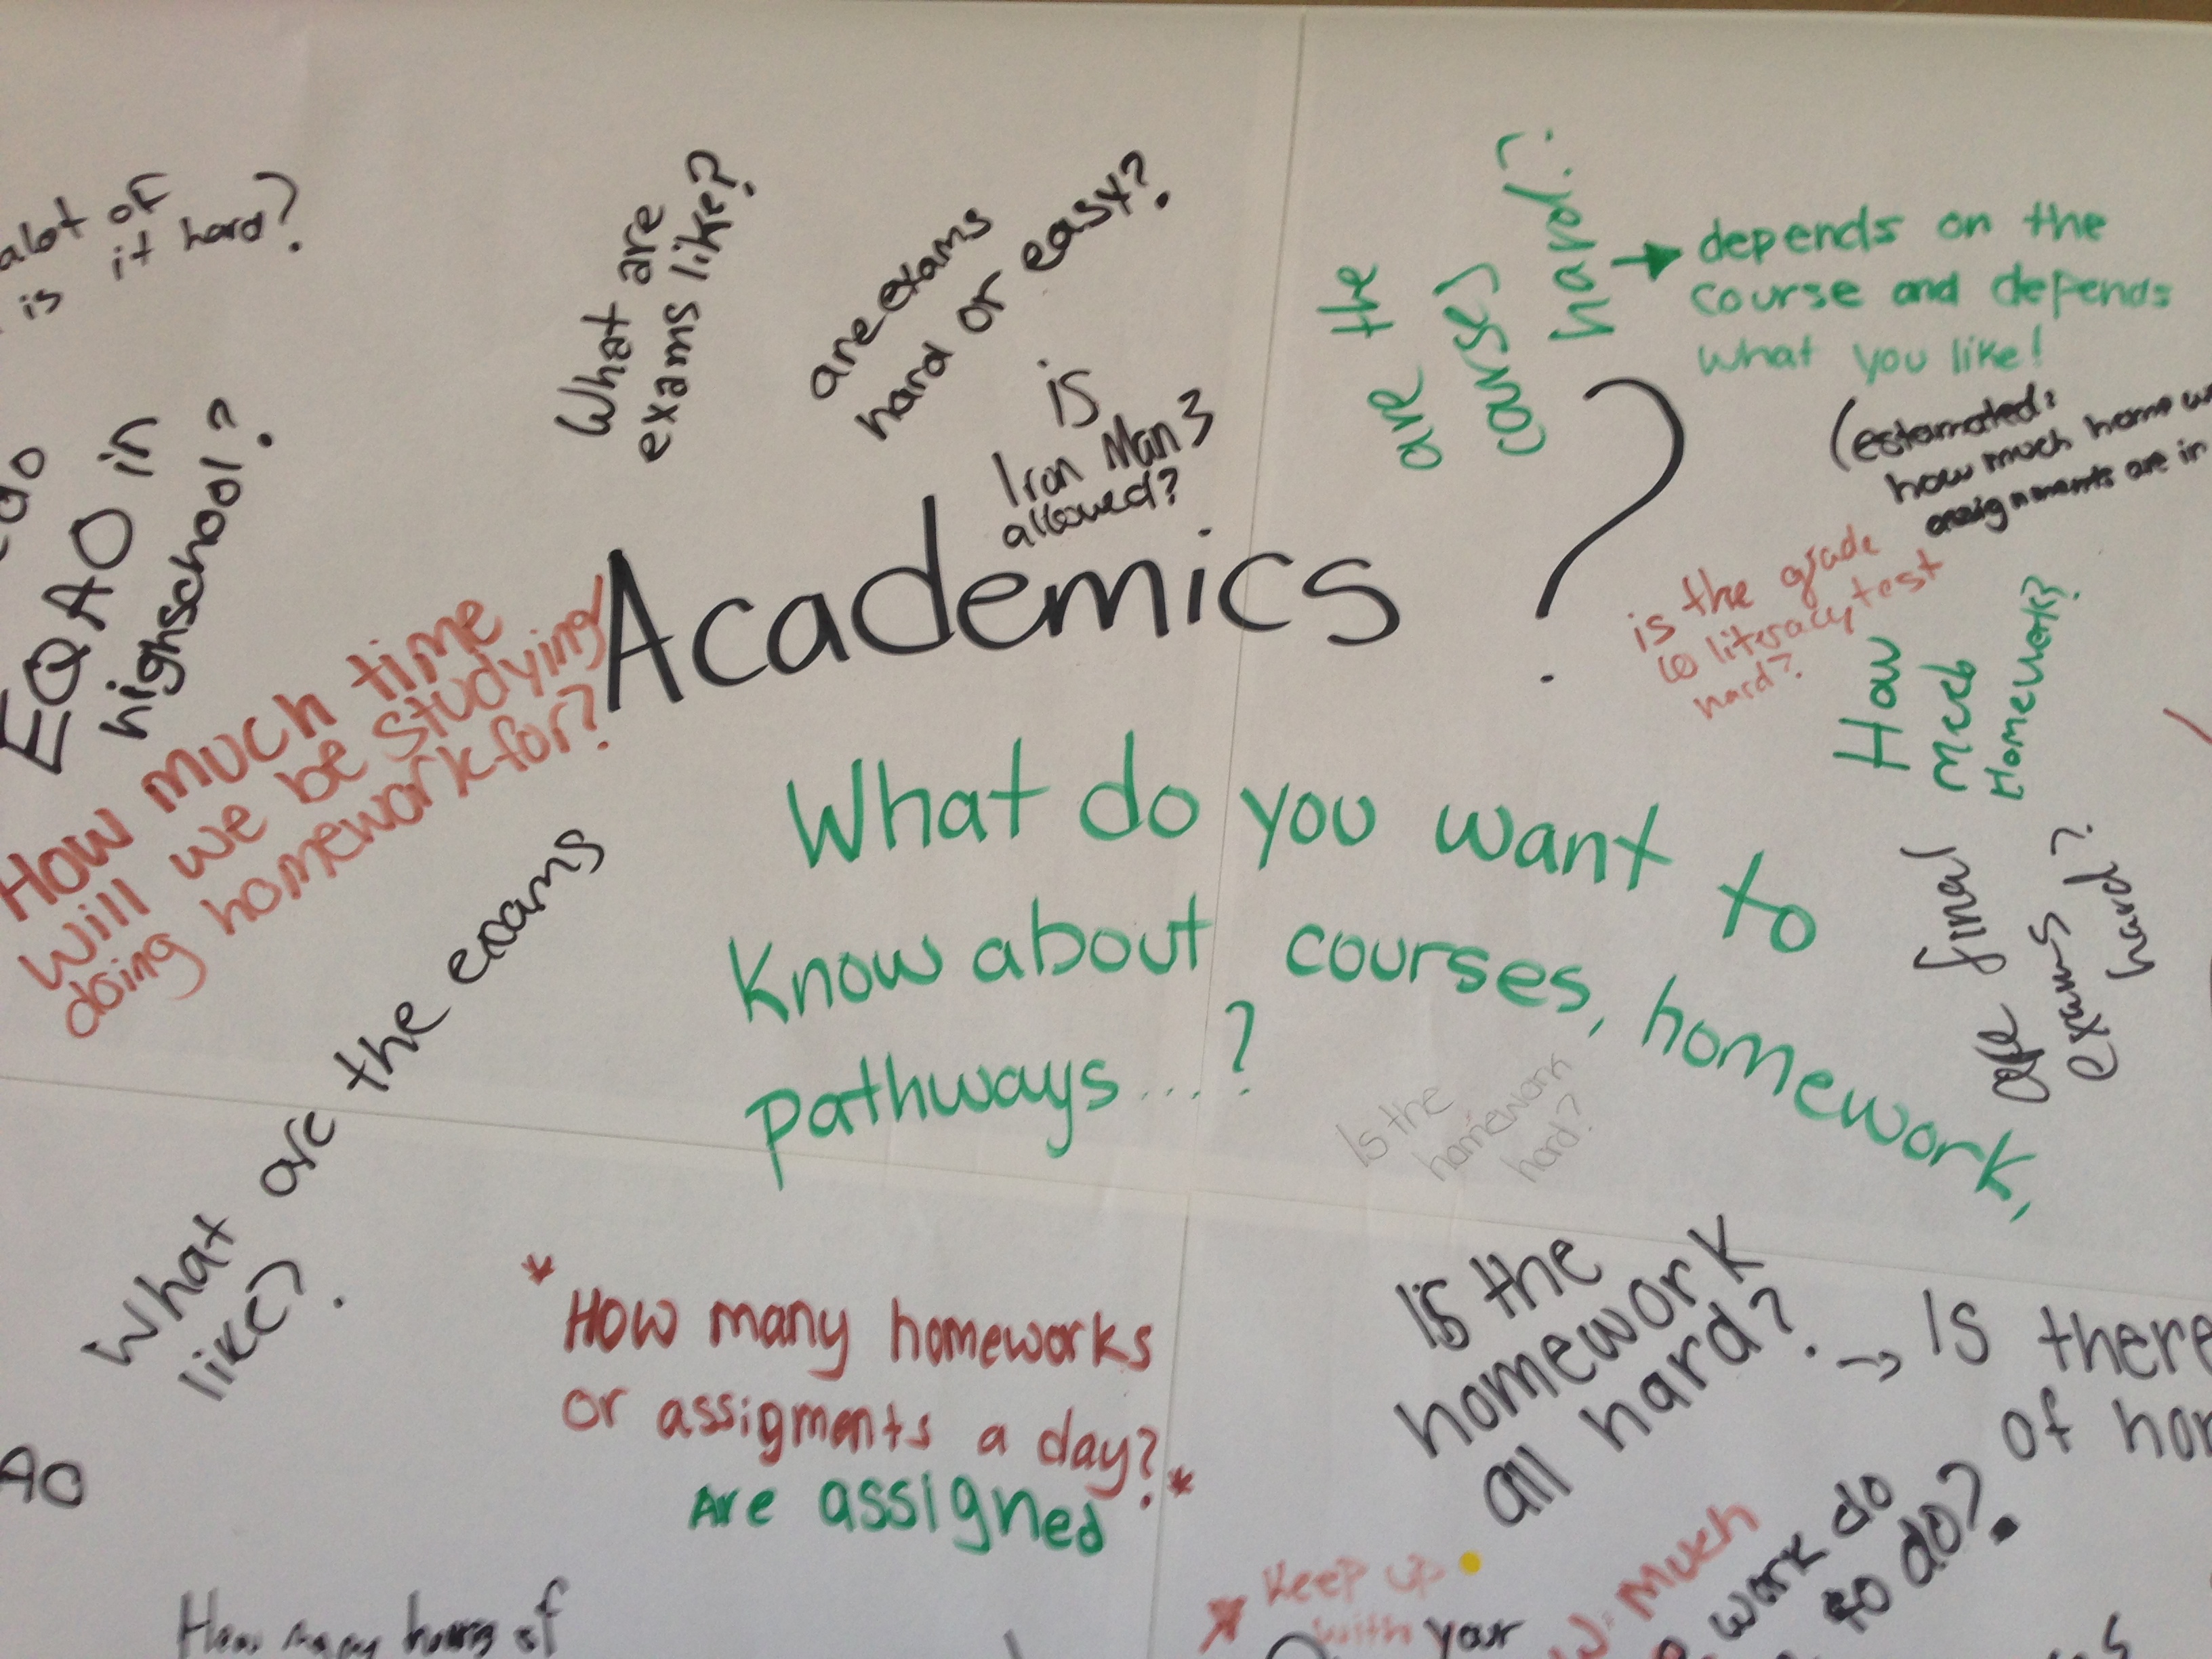 alot of
is it hard?
do
EQAO in
highschool?
What are
exams like?
are exams
hard or easy?
is
Iron Man 3
allowed?
are the
courses
hard?
depends on the
course and depends
what you like!
(estamated:
how much home w
assignments are in
is the grade
10 literacy test
hard?
How
Much
Homework?
Academics ?
How much time
will we be studying/
doing homework for?
What do you want to
know about courses, homework,
pathways...?
are final
exams
hard?
Is the
homework
hard?
What are the exams
like?
*How many homeworks
or assigments a day?*
Are assigned
Is the
homework
all hard?
→ Is there
of hom
AO
much
work do
to do?
Keep up
with your
How many hours of